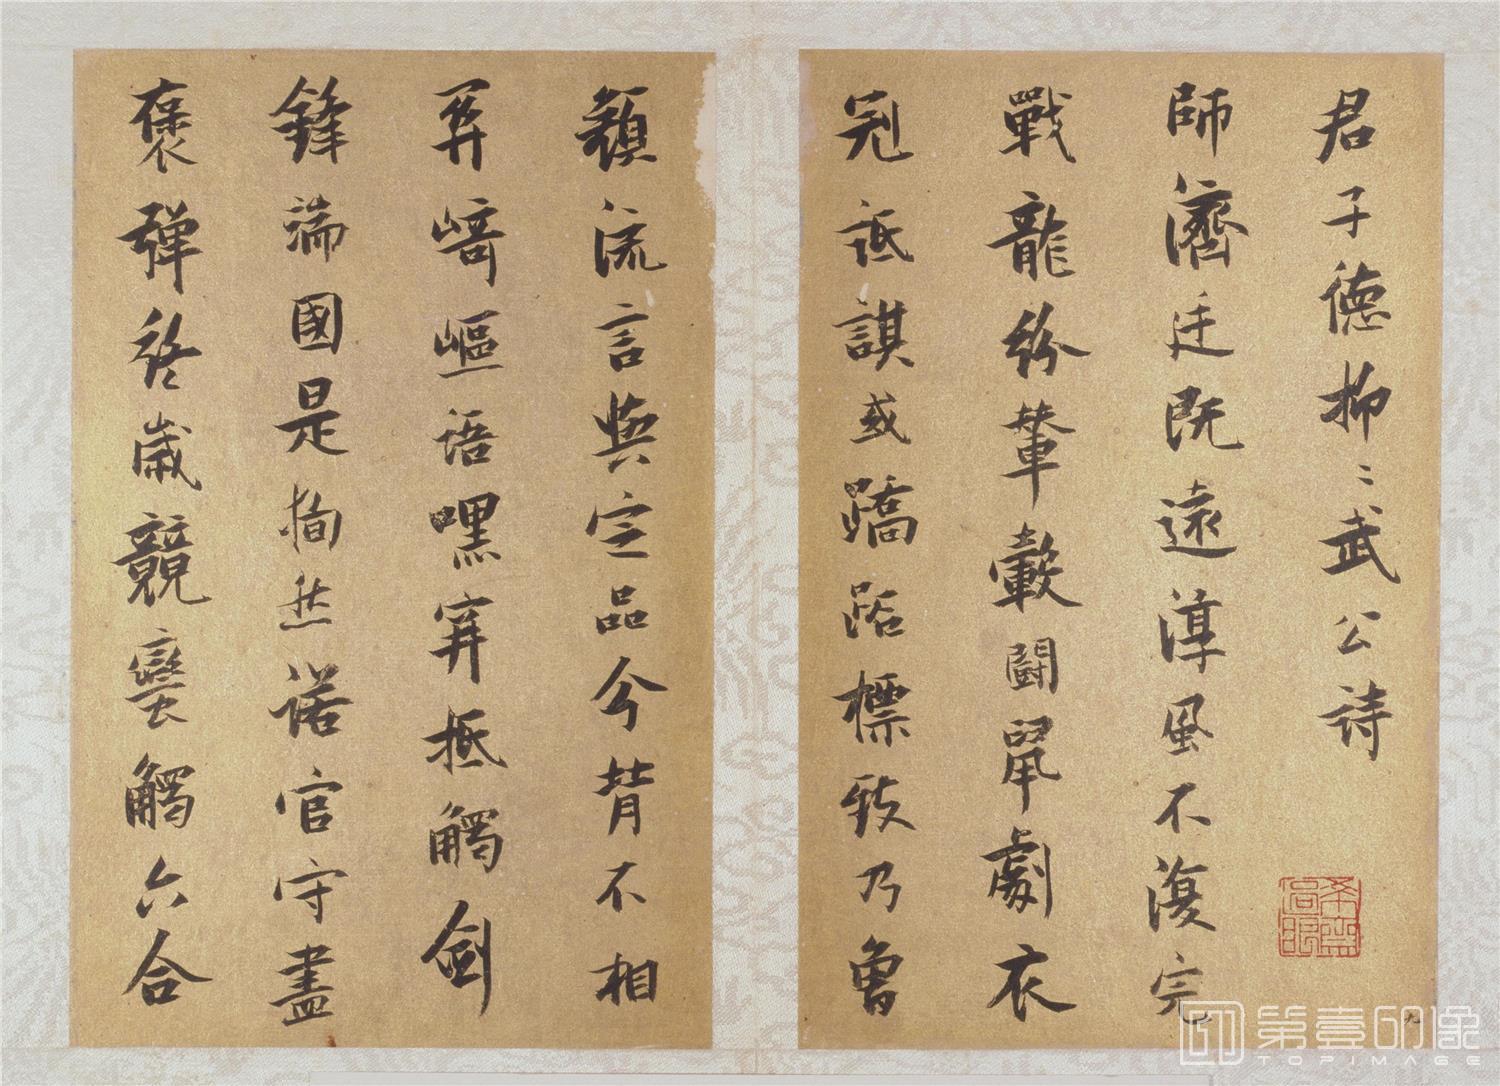 君子德抑〻武公詩
師濟廷既遠淳風不復完
戰龍紛輦轂鬪鼠劇衣
冠詆諆或蹻跖標致乃曾
顏流言與定品今昔不相
關崎嶇語嘿穽抵觸劍
鋒端國是徇然諾官守盡
褒彈終歲競蠻觸六合
第壹印像
TOPIMAGE